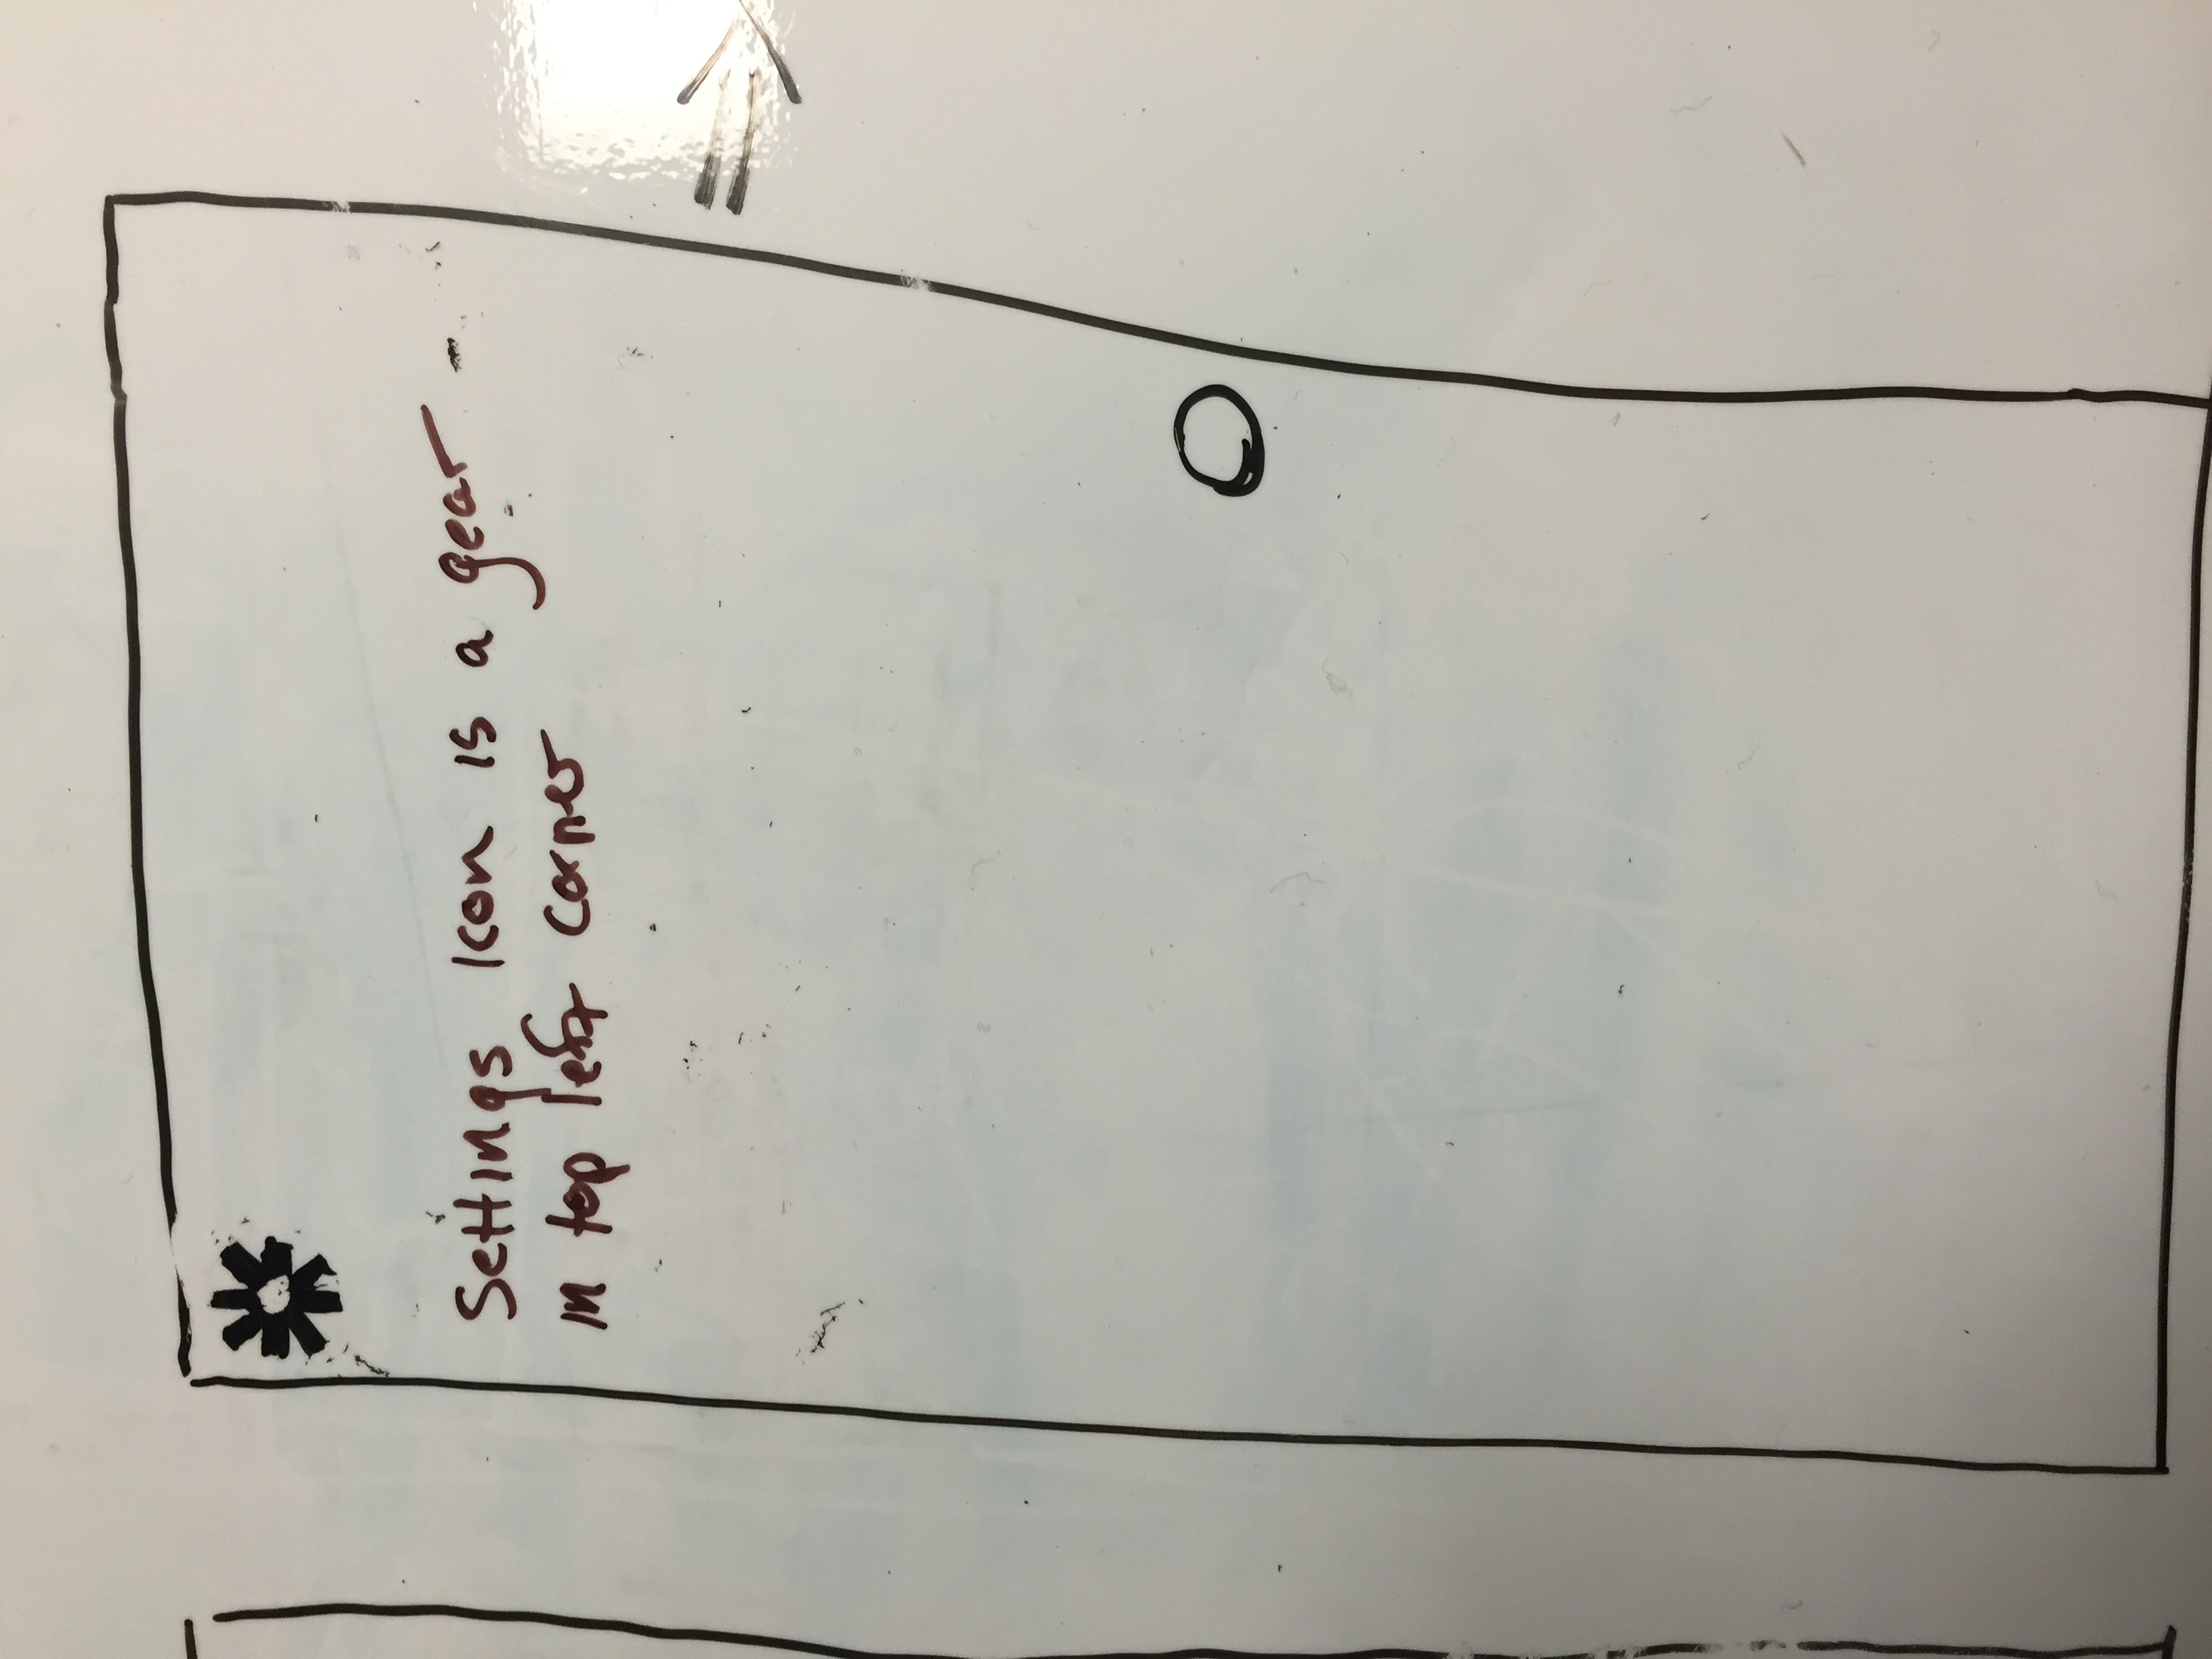 Settings icon is a gear -
in top left corner